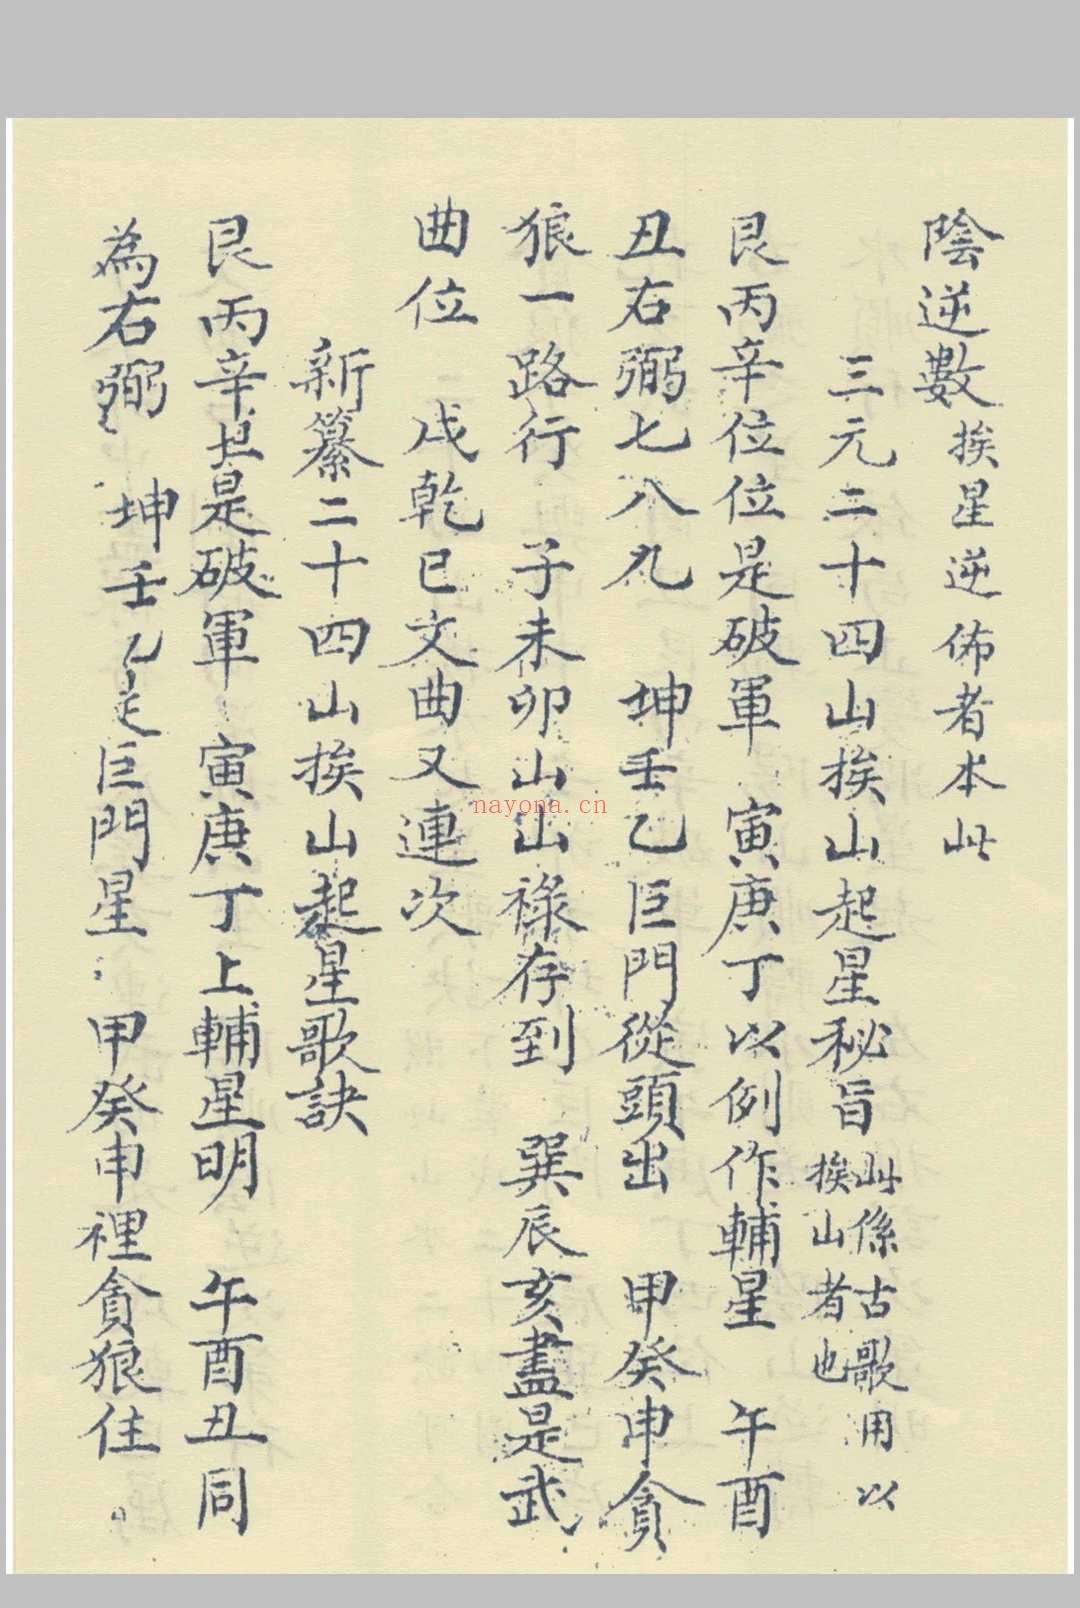 陰逆數挨星逆佈者本此
三元二十四山挨山起星秘旨此係古歌用以挨山者也
艮丙辛位位是破軍 寅庚丁以例作輔星 午酉
丑右弼七八九 坤壬乙巨門從頭出 甲癸申貪
狼一路行 子未卯山山祿存到 巽辰亥盡是武
曲位 戌乾巳文曲又連次
新纂二十四山挨山起星歌訣
艮丙辛是破軍 寅庚丁上輔星明 午酉丑同
為右弼 坤壬乙是巨門星 甲癸申裡貪狼住
nayona.cn